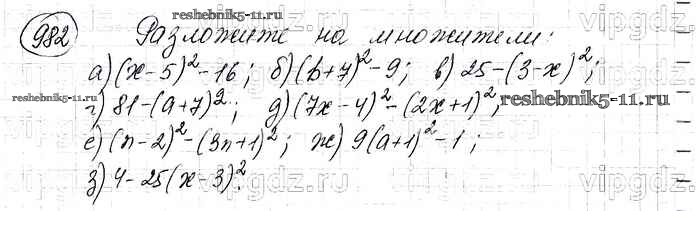 reshebnik5-11.ru
vipgdz.com
982 Разложите на множители:
а) (x-5)²-16; б) (b+7)²-9; в) 25-(3-x)²;
reshebnik5-11.ru
г) 81-(a+7)²; д) (7x-4)²-(2x+1)²;
reshebnik5-11.ru
е) (n-2)²-(3n+1)²; ж) 9(a+1)²-1;
vipgdz.com
з) 4-25(x-3)².